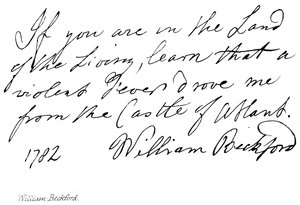 If you are in the Land
of the Living, learn that a
violent Fever drove me
from the Castle of Atlant.
1782 William Beckford
William Beckford.